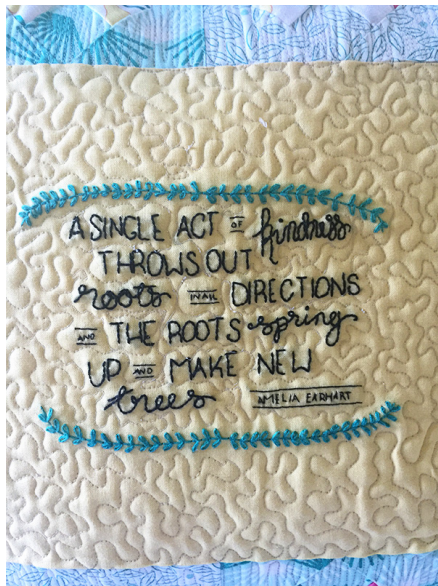 A SINGLE ACT OF kindness
THROWS OUT
roots IN ALL DIRECTIONS
AND THE ROOTS spring
UP AND MAKE NEW
trees AMELIA EARHART